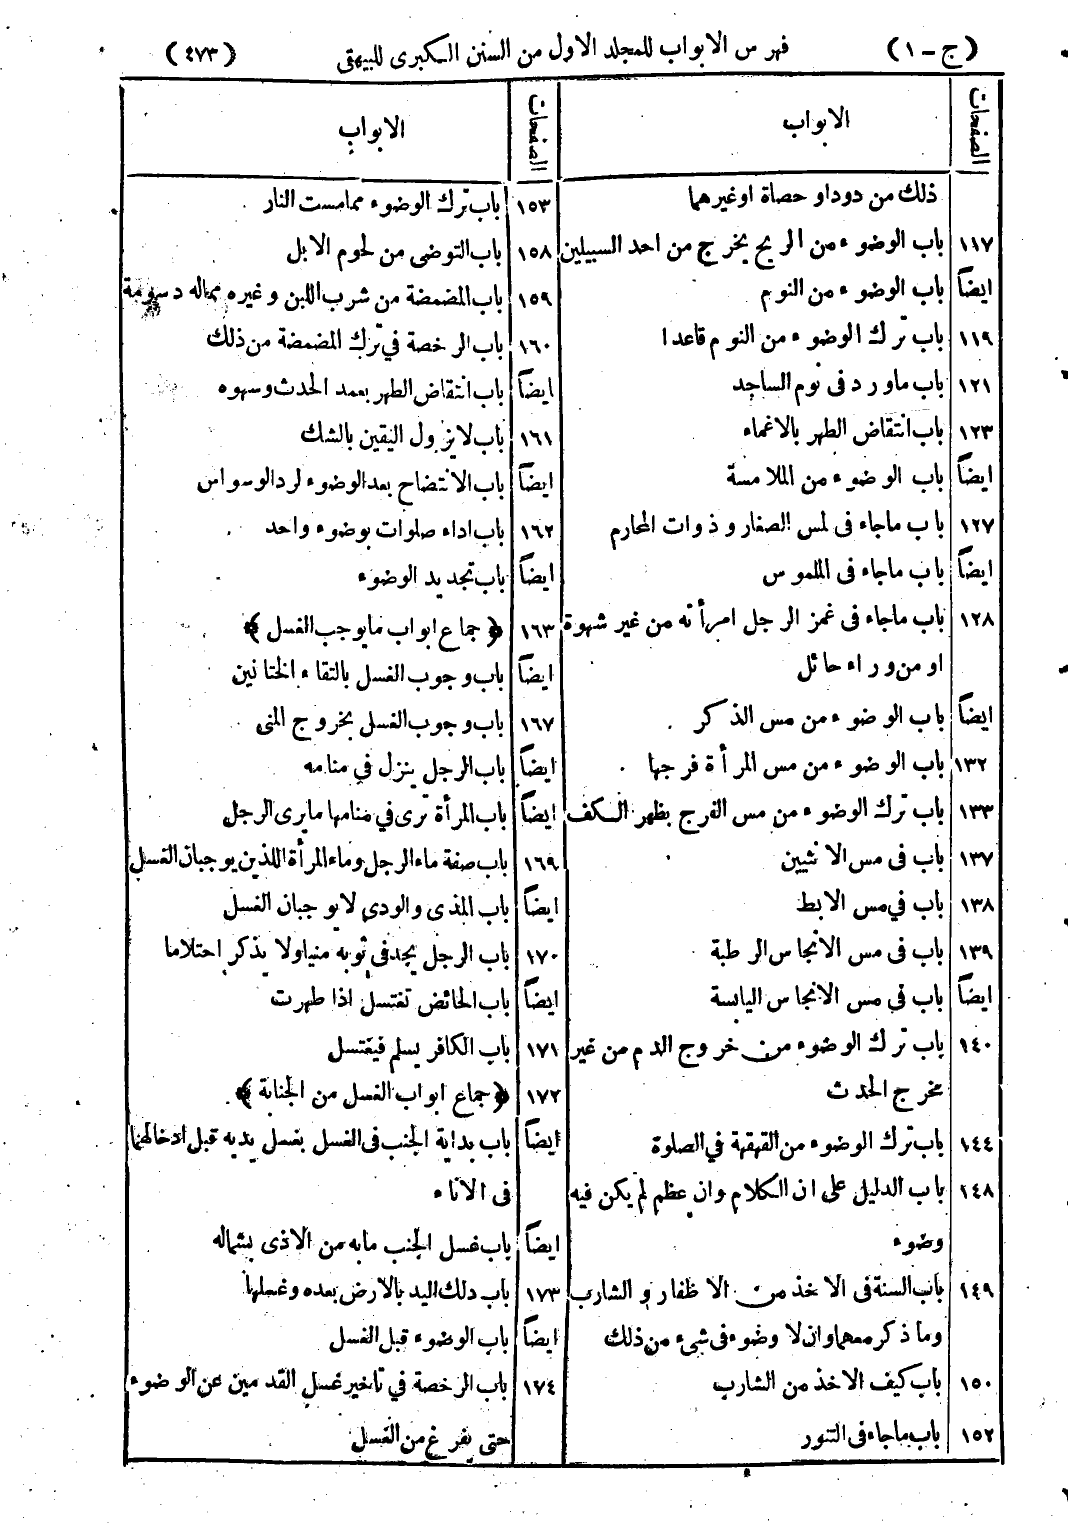 (ج - ١) فهرس الابواب للمجلد الاول من السنن الكبرى للبيهقى (٤٧٣)
الصفحات الابواب
ذلك من دود او حصاة اوغيرهما
١١٧ باب الوضوء من الريح يخرج من احد السبيلين
ايضاً باب الوضوء من النوم
١١٩ باب ترك الوضوء من النوم قاعدا
١٢١ باب ماورد فى نوم الساجد
١٢٣ باب انتقاض الطهر بالاغماء
ايضاً باب الوضوء من الملامسة
١٢٧ باب ماجاء فى لمس الصغار وذوات المحارم
ايضاً باب ماجاء فى الملموس
١٢٨ باب ماجاء فى غمز الرجل امرأته من غير شهوة
او من وراء حائل
ايضاً باب الوضوء من مس الذكر
١٣٢ باب الوضوء من مس المرأة فرجها
١٣٣ باب ترك الوضوء من مس الفرج بظهر الكف
١٣٧ باب فى مس الانثيين
١٣٨ باب في مس الابط
١٣٩ باب فى مس الانجاس الرطبة
ايضاً باب فى مس الانجاس اليابسة
١٤٠ باب ترك الوضوء من خروج الدم من غير
مخرج الحدث
١٤٤ باب ترك الوضوء من القهقهة في الصلوة
١٤٨ باب الدليل على ان الكلام وان عظم لم يكن فيه
وضوء
١٤٩ باب السنة فى الاخذ من الاظفار و الشارب
وما ذكر معهما وان لا وضوء فى شىء من ذلك
١٥٠ باب كيف الاخذ من الشارب
١٥٢ باب ماجاء فى التنور
الصفحات الابواب
١٥٣ باب ترك الوضوء ممامست النار
١٥٨ باب التوضى من لحوم الابل
١٥٩ باب المضمضة من شرب اللبن وغيره مماله دسومة
١٦٠ باب الرخصة في ترك المضمضة من ذلك
ايضاً باب انتقاض الطهر بعمد الحدث وسهوه
١٦١ باب لايزول اليقين بالشك
ايضاً باب الانتضاح بعد الوضوء لرد الوسواس
١٦٢ باب اداء صلوات بوضوء واحد
ايضاً باب تجديد الوضوء
١٦٣ ﴿ جماع ابواب مايوجب الغسل ﴾
ايضاً باب وجوب الغسل بالتقاء الختانين
١٦٧ باب وجوب الغسل بخروج المنى
ايضاً باب الرجل ينزل في منامه
ايضاً باب المرأة ترى في منامها مايرى الرجل
١٦٩ باب صفة ماء الرجل وماء المرأة اللذين يوجبان الغسل
ايضاً باب المذى والودى لايوجبان الغسل
١٧٠ باب الرجل يجد فى ثوبه منيا ولا يذكر احتلاما
ايضاً باب الحائض تغتسل اذا طهرت
١٧١ باب الكافر يسلم فيغتسل
١٧٢ ﴿ جماع ابواب الغسل من الجنابة ﴾
ايضاً باب بداية الجنب فى الغسل بغسل يديه قبل ادخالهما
فى الاناء
ايضاً باب غسل الجنب مابه من الاذى بشماله
١٧٣ باب دلك اليد بالارض بعده وغسلها
ايضاً باب الوضوء قبل الغسل
١٧٤ باب الرخصة في تاخير غسل القدمين عن الوضوء
حتى يفرغ من الغسل